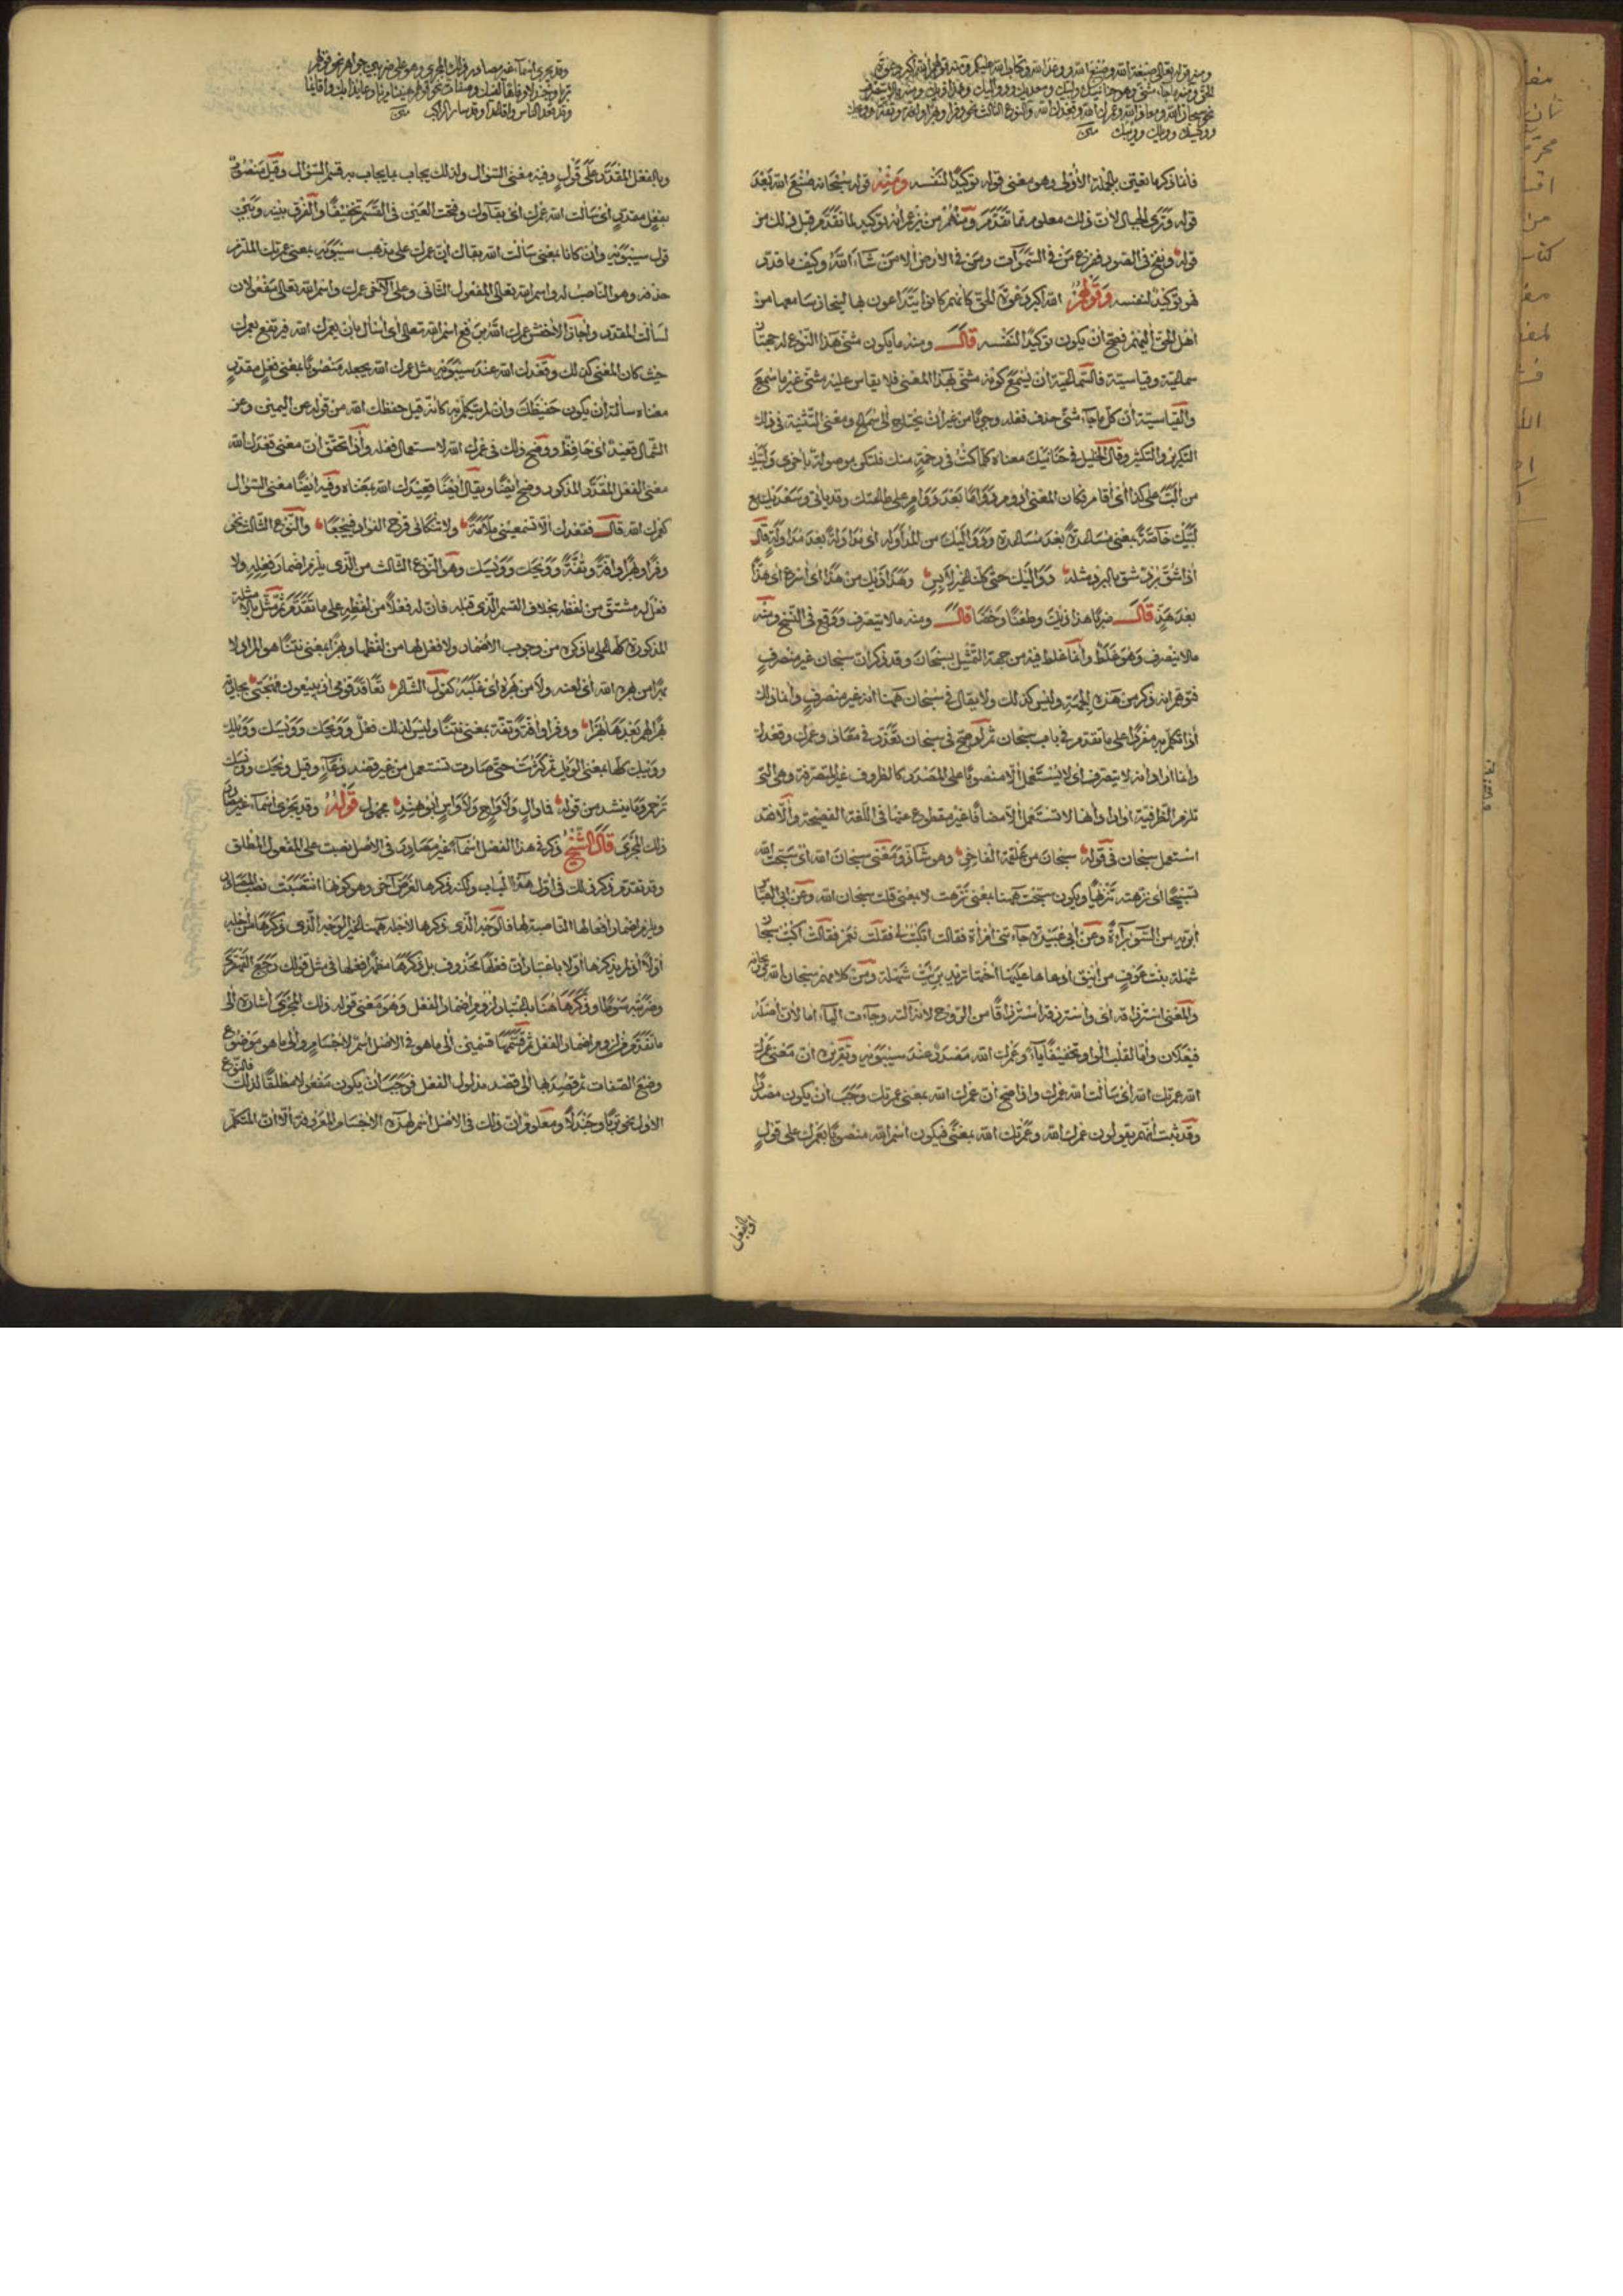 ومنه قوله تعالى صنعة الله وصنع الله ووعد الله وكتاب الله عليكم ومنه قولهم الله أكبر دعوة
الحق ومنه ما جاء مثنى وهو حنانيك ولبيك وسعديك ودواليك وهذاذيك ومنه ما لا يتصرف
نحو سبحان الله ومعاذ الله وعمرك الله وقعدك الله والنوع الثالث نحو دفرا وبهرا وافة وتفة وويحك
وويسك وويلك وويبك متن
فانما ذكر ما تعين بالجملة الأولى وهو معنى قوله توكيدًا لنفسه ومنه قوله سبحانه صنع الله بعد
قوله وترى الجبال لان ذلك معلوم مما تقدم ومنهم من زعم انه توكيد لما تقدم قبل ذلك من
قوله ونفخ في الصور ففزع من في السموات ومن في الارض الا من شاء الله وكيف ما قدر
فهو توكيد لنفسه وقولهم الله اكبر دعوة الحق كانهم كانوا يتداعون بها لينحاز سامعها من
اهل الحق اليهم فصح ان يكون توكيدًا لنفسه قال ومنه ما يكون مثنى هذا النوع له جهتان
سماعية وقياسية فالسماعية ان يسمع كونه مثنى بهذا المعنى فلا يقاس عليه مثنى غير ما سمع
والقياسية ان كل ما جاء مثنى حذف فعله وجوبًا من غير ان يحتاج الى سماع ومعنى التثنية في ذلك
التكرير والتكثير وقال الخليل في حنانيك معناه كلما كنت في رحمة منك فلتكن موصولة باخرى ولبيك
من ألب على كذا أي أقام فكان المعنى أدوم دوامًا بعد دوام على طاعتك وقد يأتي وسعديك مع
لبيك خاصة بمعنى مساعدة بعد مساعدة ودواليك من المداولة اي مداولة بعد مداولة قال
اذا شق برد شق بالبرد مثله دواليك حتى كلنا غير لابس وهذاذيك من هذ اي اسرع اي هذا
بعد هذ قال ضربًا هذاذيك وطعنًا وخضا قال ومنه ما لا يتصرف ووقع في النسخ ومنه
ما لا ينصرف وهو غلط وانما غلط فيه من جهة التمثيل بسبحان وقد ذكر ان سبحان غير منصرف
فتوهم انه ذكر من هذه الجهة وليس كذلك ولا يقال في سبحان ههنا انه غير منصرف وانما ذلك
اذا تكلم به مفردًا على ما تقدم في باب سبحان ثم لو صح في سبحان تعذر في معاذ وعمرك وقعدك
وانما اراد انه لا يتصرف اي لا يستعمل الا منصوبًا على المصدر كالظروف غير المتصرفة وهي التي
تلزم الظرفية اواراد انها لا تستعمل الا مضافًا غير مقطوع عنها في اللغة الفصيحة والا فقد
استعمل سبحان في قوله سبحان من علقمة الفاخر وهو شاذ ومعنى سبحان الله اي سبحت الله
تسبيحًا اي نزهته تنزيهًا ويكون سبحت ههنا بمعنى نزهت لا بمعنى قلت سبحان الله
وعن أبي عبيدة جاءتني امرأة فقالت اتكتب لي فقلت نعم فقالت اكتب
والمعنى استرزاقه
فيعلان واما لقلب الواو تخفيفًا ياء وعمرك الله مصدر عند سيبويه وتقريره ان معنى عمرك
الله عمرتك الله اي سألت الله عمرك واذا صح ان عمرك الله بمعنى عمرتك وجب ان يكون مصدرًا
وقد ثبت انهم يقولون عمرك الله وعمرتك الله بمعنى فيكون اسم الله منصوبًا بعمرك على قول
او بالفعل
وقد يجري اسماء غير مصادر ذلك المجرى وهو على ضربين جواهر نحو قولهم
تربا وجندلا وصفات نحو قولهم هنيئا مريئا وعائذا بك واقائما
وقد قعد الناس واقاعدا وقد سار الركب متن
وبالفعل المقدر على قول وفيه معنى السؤال ولذلك يجاب بما يجاب به قسم السؤال وقيل منصوب
بفعل مقدر اي سألت الله عمرك اي بقاءك وفتحت العين في القسم تخفيفًا والفرق بينه وبين
قول سيبويه وان كانا بمعنى سألت الله بقاءك ان عمرك على مذهب سيبويه بمعنى عمرتك الملتزم
حذفه وهو الناصب له واسم الله تعالى المفعول الثاني وعلى الآخر عمرك واسم الله تعالى مفعولان
لسألت المقدر واجاز الاخفش عمرك الله برفع اسم الله تعالى اي اسأل بان يعمرك الله فيرتفع بعمرك
حيث كان المعنى كذلك وقعدك الله عند سيبويه مثل عمرك الله يجعله منصوبًا بمعنى فعل مقدر
معناه سألته ان يكون حفيظك وان لم يتكلم به كأنه قيل حفظك الله من قوله عن اليمين وعن
الشمال قعيد اي حافظ ووضح ذلك في عمرك الله لاستعمال فعله واذا تحقق ان معنى قعدك الله
معنى الفعل المقدر المذكور وضح ايضًا ويقال ايضًا قعيدك الله بمعناه وفيه ايضًا معنى السؤال
كعمرك الله قال فقعدك الا تسمعيني ملامة ولا تنكئي قرح الفؤاد فييجعا والنوع الثالث نحو
دفرا وبهرا وافة وتفة وويحك وويسك وهو النوع الثالث من الذي يلزم اضمار فعله ولا
فعل له مشتق من لفظه بخلاف القسم الذي قبله فان له فعلًا من لفظه على ما تقدم ثم مثل بالامثلة
المذكورة كلها على ما ذكره من وجوب الاضمار ولا فعل لها من لفظها وبهرًا بمعنى نتنًا هو المراد لا
بهرًا من بهره الله اي لعنه ولا من بهره اي غلبه كقول الشاعر تفاقد قومي اذ يبيعون مهجتي بجارية
بهرًا لهم بعدها بهرا ودفرا وافة وتفة بمعنى نتنًا وليس لذلك فعل وويحك وويسك وويلك
وويبك كلها بمعنى الويل ثم كثرت حتى صارت تستعمل من غير قصد دعاء وقيل ويحك وويسك
ترحم وما ينشد من قوله فما وال ولا واح ولا واس ابو هند مجهول قوله وقد يجري اسماء غير مصادر
ذلك المجرى قال الشيخ ذكر في هذا الفصل اسماء غير مصادر في الاصل نصبت على المفعول المطلق
وقد تقدم ذكر ذلك في اول هذا الباب ولكنه ذكرها لغرض آخر وهو كونها انتصبت نصب المصادر
ويلزم اضمار افعالها الناصبة لها فالوجه الذي ذكرها لاجله ههنا غير الوجه الذي ذكرها من اجله
اولًا اذ لم يذكرها اولا باعتبار ان فعلها محذوف بل ذكرها مظهرًا فعلها في مثل قولك رجع القهقرى
وضربته سوطًا وذكرها هنا باعتبار لزوم اضمار الفعل وهو معنى قوله ذلك المجرى اشارة الى
ما تقدم من لزوم اضمار الفعل ثم قسمها قسمين الى ما هو في الاصل اسم للاجسام والى ما هو موضوع
وضع الصفات ثم قصد بها الى قصد مدلول الفعل فوجب ان يكون مفعولا مطلقًا لذلك فالنوع
الاول نحو تربًا وجندلًا ومعلوم ان ذلك في الاصل اسم لهذه الاجسام المعروفة الا ان المتكلم